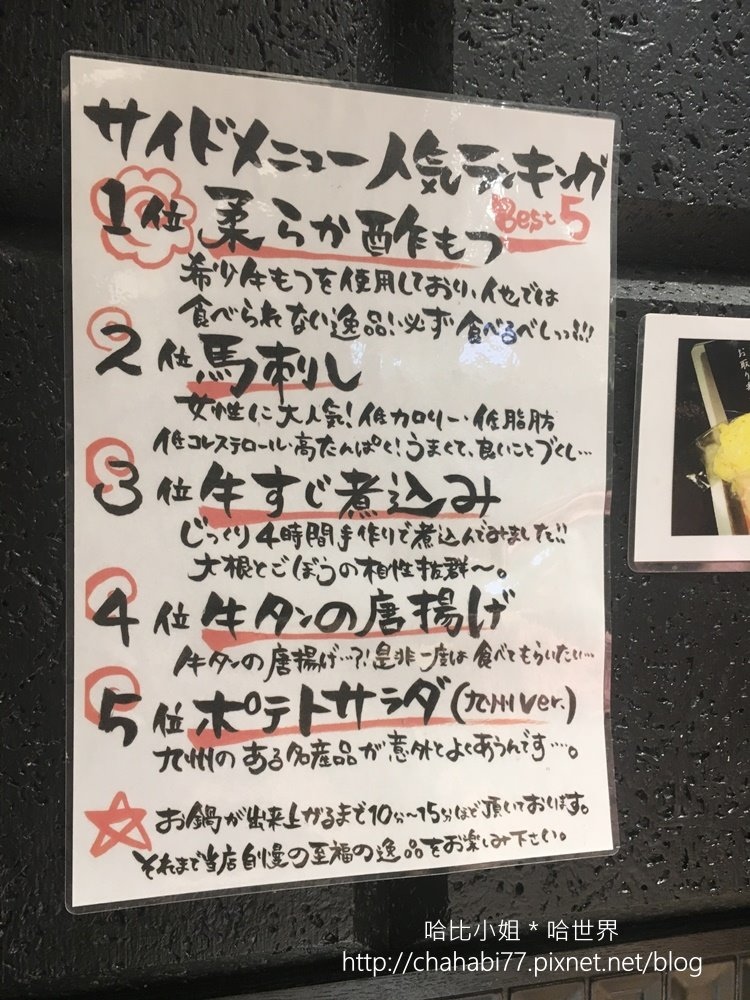 サイドメニュー人気ランキング
Best 5
1位 柔らか酢もつ
希少牛もつを使用しており、他では
食べられない逸品!必ず食べるべしっっ!!!
2位 馬刺し
女性に大人気!低カロリー・低脂肪
低コレステロール・高たんぱく!うまくて、良いことづくし…
3位 牛すじ煮込み
じっくり4時間手作りで煮込んでみました!!
大根とごぼうの相性抜群〜。
4位 牛タンの唐揚げ
牛タンの唐揚げ…?!是非一度は食べてもらいたい…
5位 ポテトサラダ(九州ver.)
九州のある名産品が意外とよくあうんです…。
お鍋が出来上がるまで10分〜15分ほど頂いております。
それまで当店自慢の至福の逸品をお楽しみ下さい。
お取り
哈比小姐 * 哈世界
http://chahabi77.pixnet.net/blog